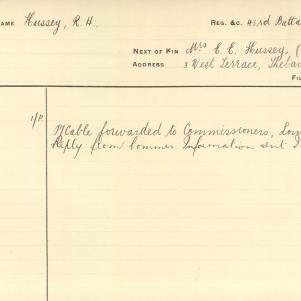 NAME Hussey, R. H.
REG. &C. 43rd Batta
NEXT OF KIN Mrs E. E. Hussey, (
ADDRESS 3 West Terrace, Thebar
FI
1/P. Cable forwarded to Commissioners, Lon
Reply from Commrs. Information sent